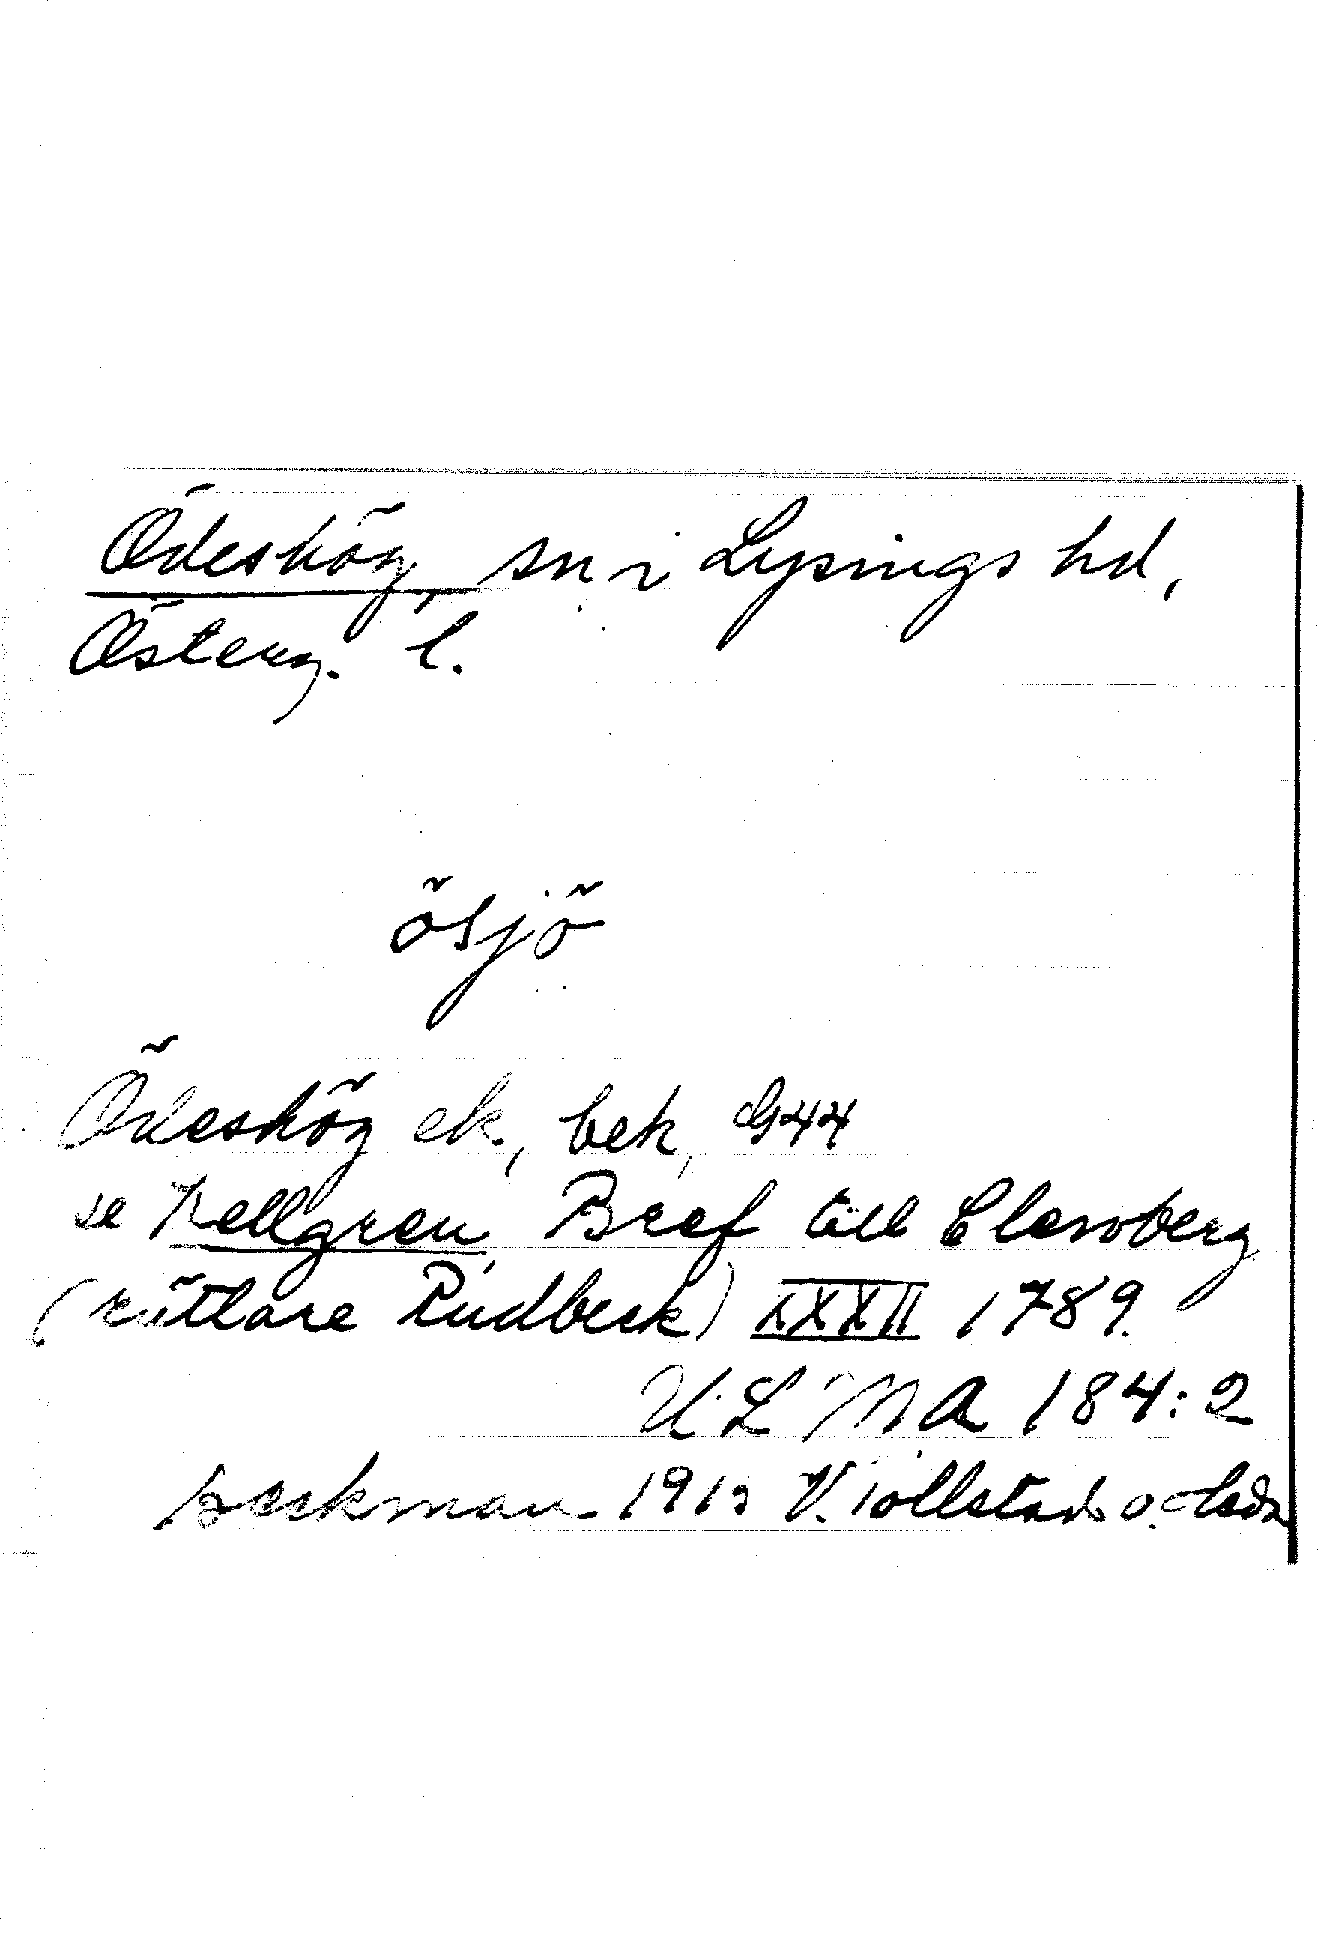 Ödeshög, sn i Lysings hd,
Österg. l.
ösjö
Ödeshög ek, bek, G44
se Kellgren, Bref till Clewberg
(Rütlare Rudbeck) XXXII 1789.
ULMA 184:2
Beckman 1913 V. Tollstads o.